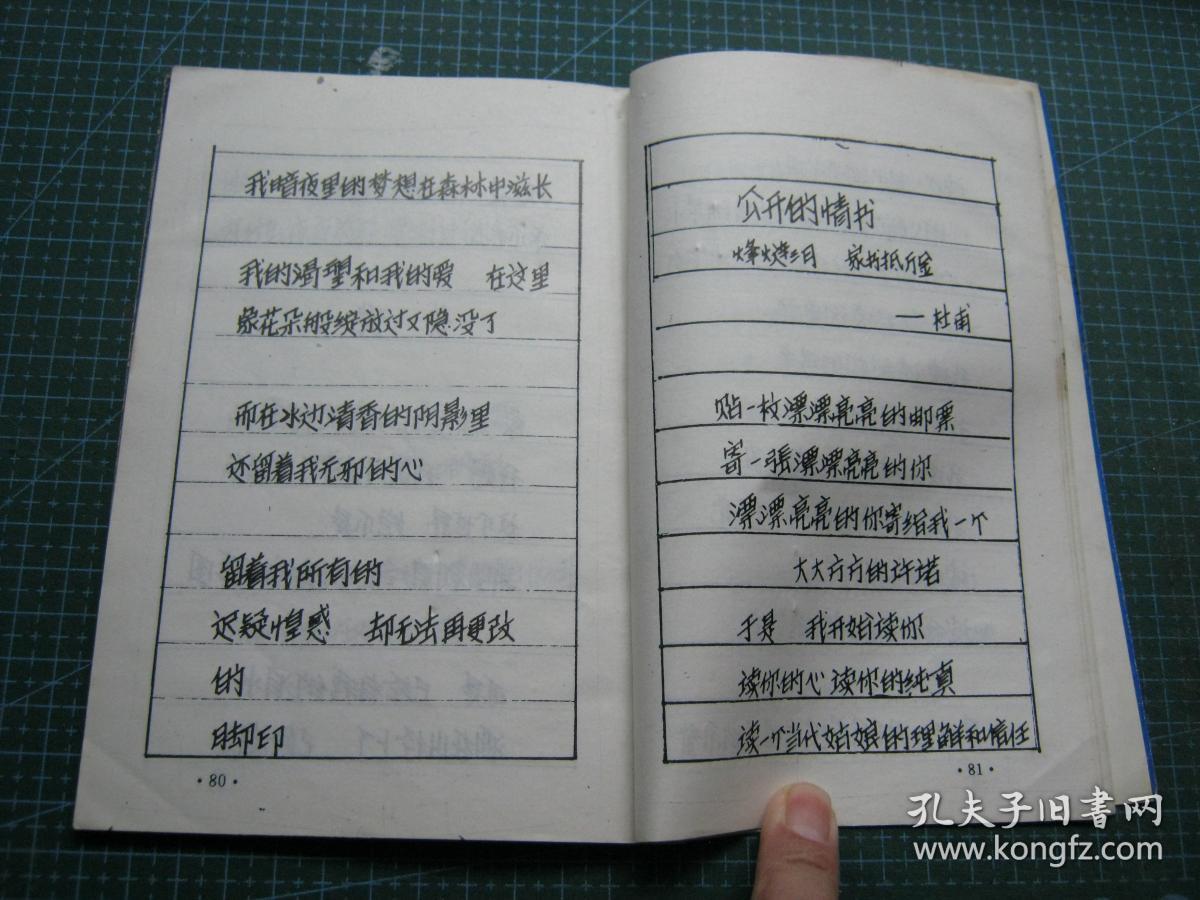 我暗夜里的梦想在森林中滋长
我的渴望和我的爱 在这里
象花朵般绽放过又隐没了
而在水边清香的阴影里
还留着我无邪的心
留着我所有的
迟疑惶惑 却无法再更改
的
脚印
·80·
公开的情书
烽火连三月 家书抵万金
——杜甫
贴一枚漂漂亮亮的邮票
寄一張漂漂亮亮的你
漂漂亮亮的你寄给我一个
大大方方的许诺
于是 我开始读你
读你的心读你的纯真
读一个当代姑娘的理解和信任
·81·
孔夫子旧书网
www.kongfz.com